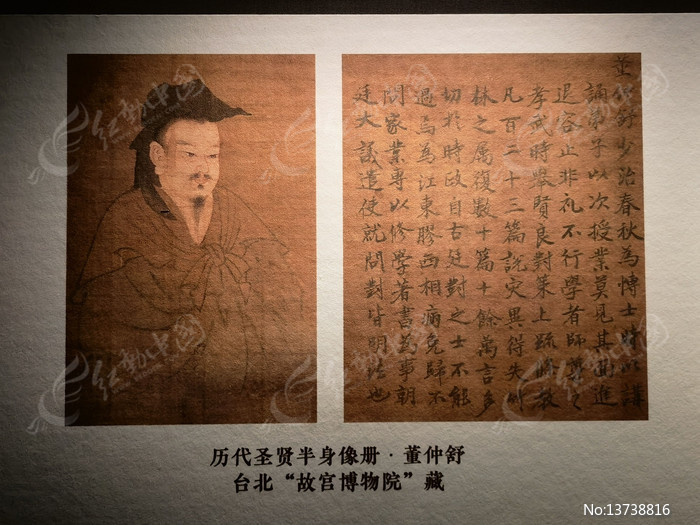 董仲舒少治春秋為博士時以講
誦弟子以次授業莫見其面進
退容止非礼不行學者師尊之
孝武時舉賢良對策上疏條教
凡百二十三篇說灾異得失竹
林之属復數十篇十餘萬言多
切於時政自古廷對之士不能
過焉為江東膠西相病免歸不
問家業專以修學著書為事朝
廷大議遣使就問對皆明法也
历代圣贤半身像册·董仲舒
台北“故宫博物院”藏
红动中国
No:13738816